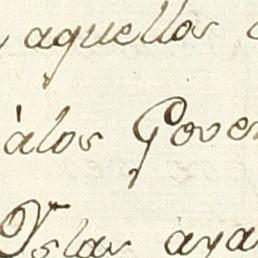 aquellos
àlos Gover
Yslas aya